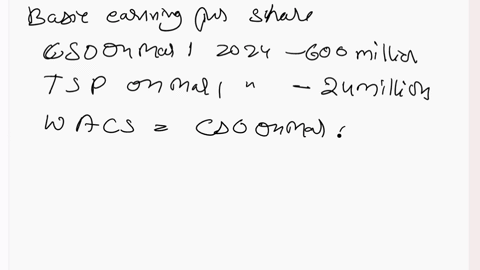 Basic earning per share
CSO on Mar 1 2024 - 600 million
TSP on Mar 1 " - 24 million
WACS = CSO on Mar :